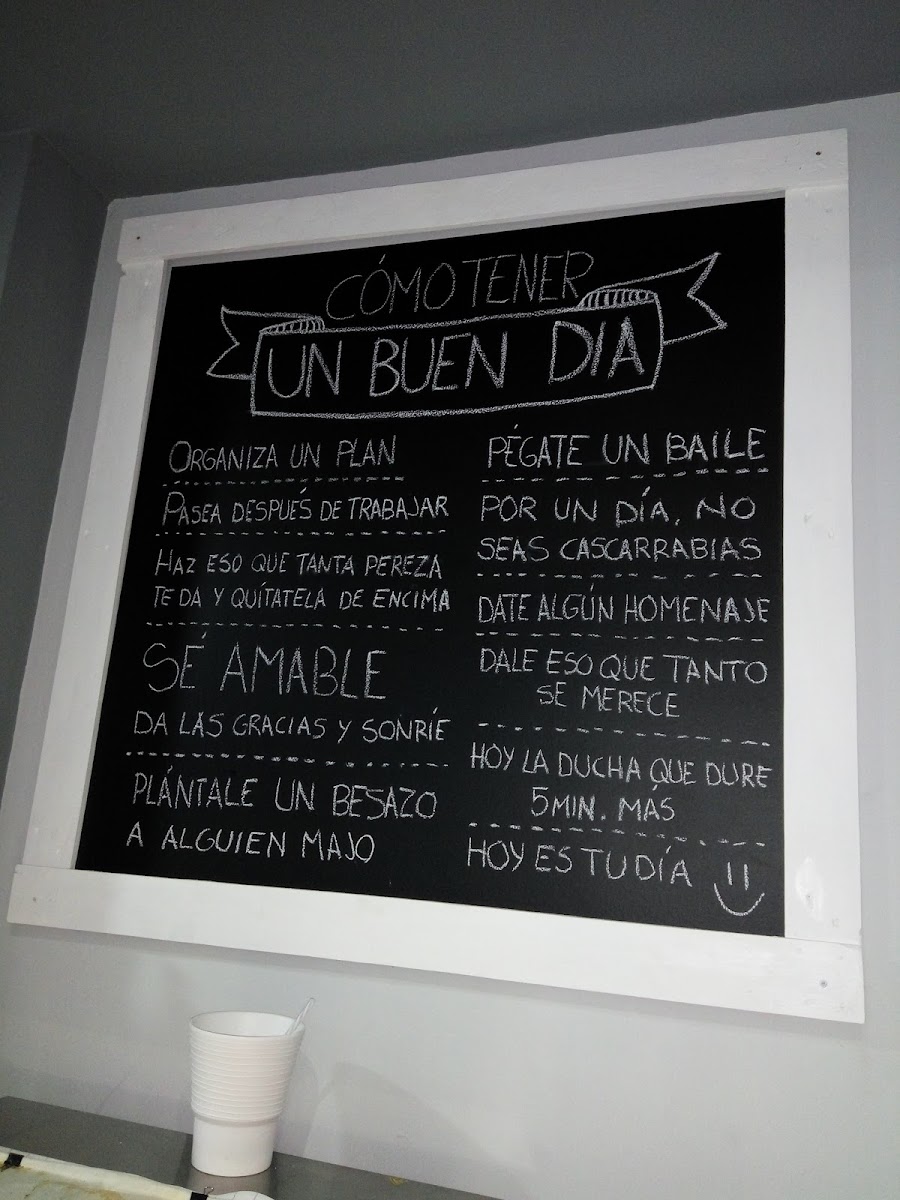 CÓMO TENER
UN BUEN DIA
ORGANIZA UN PLAN
PASEA DESPUÉS DE TRABAJAR
HAZ ESO QUE TANTA PEREZA
TE DA Y QUÍTATELA DE ENCIMA
SÉ AMABLE
DA LAS GRACIAS Y SONRÍE
PLÁNTALE UN BESAZO
A ALGUIEN MAJO
PÉGATE UN BAILE
POR UN DÍA, NO
SEAS CASCARRABIAS
DATE ALGÚN HOMENAJE
DALE ESO QUE TANTO
SE MERECE
HOY LA DUCHA QUE DURE
5 MIN. MÁS
HOY ES TU DÍA